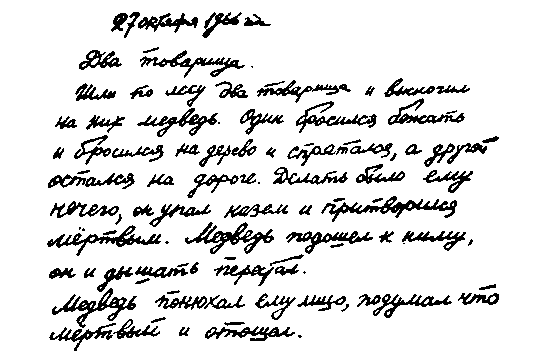 27 октября 1966 г.
Два товарища.
Шли по лесу два товарища и выскочил
на них медведь. Один бросился бежать
и бросился на дерево и спрятался, а другой
остался на дороге. Делать было ему
нечего, он упал назем и притворился
мёртвым. Медведь подошел к ниму,
он и дышать перестал.
Медведь понюхал ему лицо, подумал что
мёртвый и отошал.